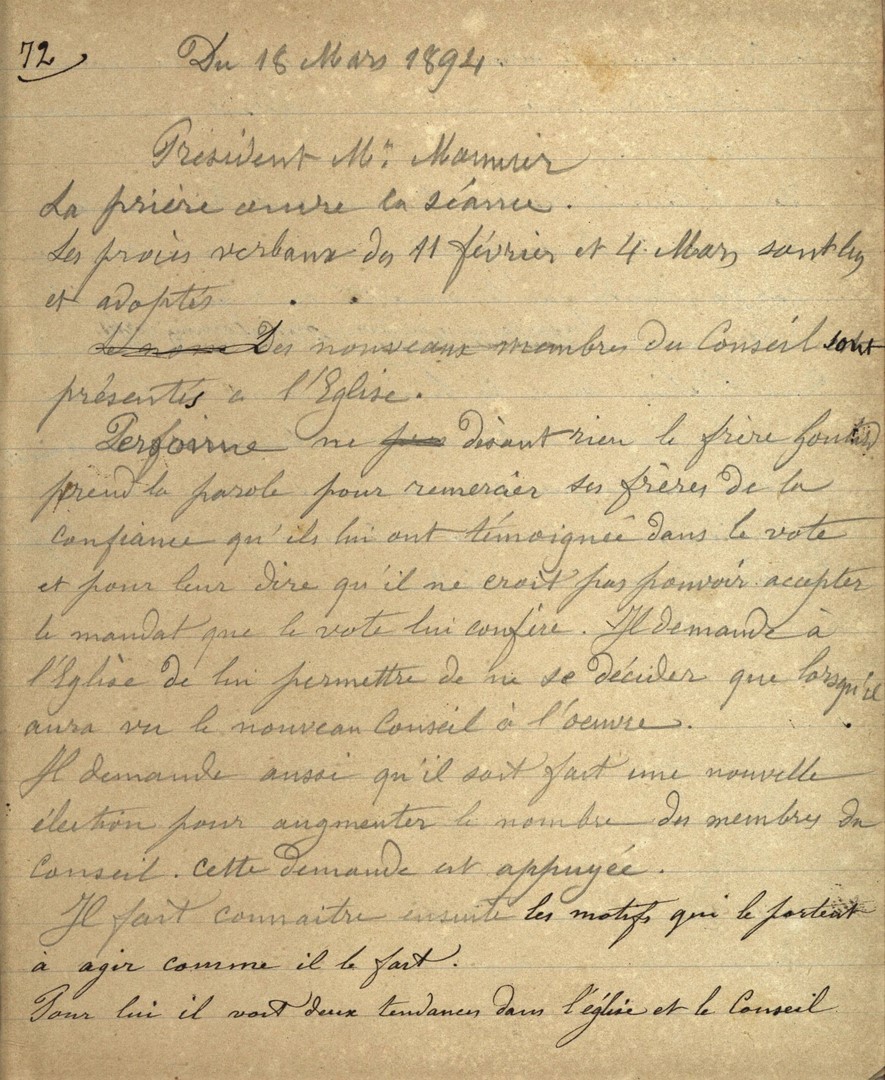 72
Du 18 Mars 1894.
Président Mr.
La prière œuvre la séance.
Les procès verbaux des 11 février et 4 Mars sont lus
et adoptés
Des nouveaux membres du Conseil sont
présentés a l'Eglise.
Personne ne disant rien le frère
prend la parole pour remercier ses frères de la
confiance qu'ils lui ont témoignée dans le vote
et pour leur dire qu'il ne croit pas pouvoir accepter
le mandat que le vote lui confère. Il demande à
l'Eglise de lui permettre de ne se décider que lorsqu'il
aura vu le nouveau Conseil à l'oeuvre.
Il demande aussi qu'il soit fait une nouvelle
élection pour augmenter le nombre des membres du
Conseil. cette demande est appuyée.
Il fait connaitre ensuite les motifs qui le portent
à agir comme il le fait.
Pour lui il voit deux tendances dans l'église et le Conseil